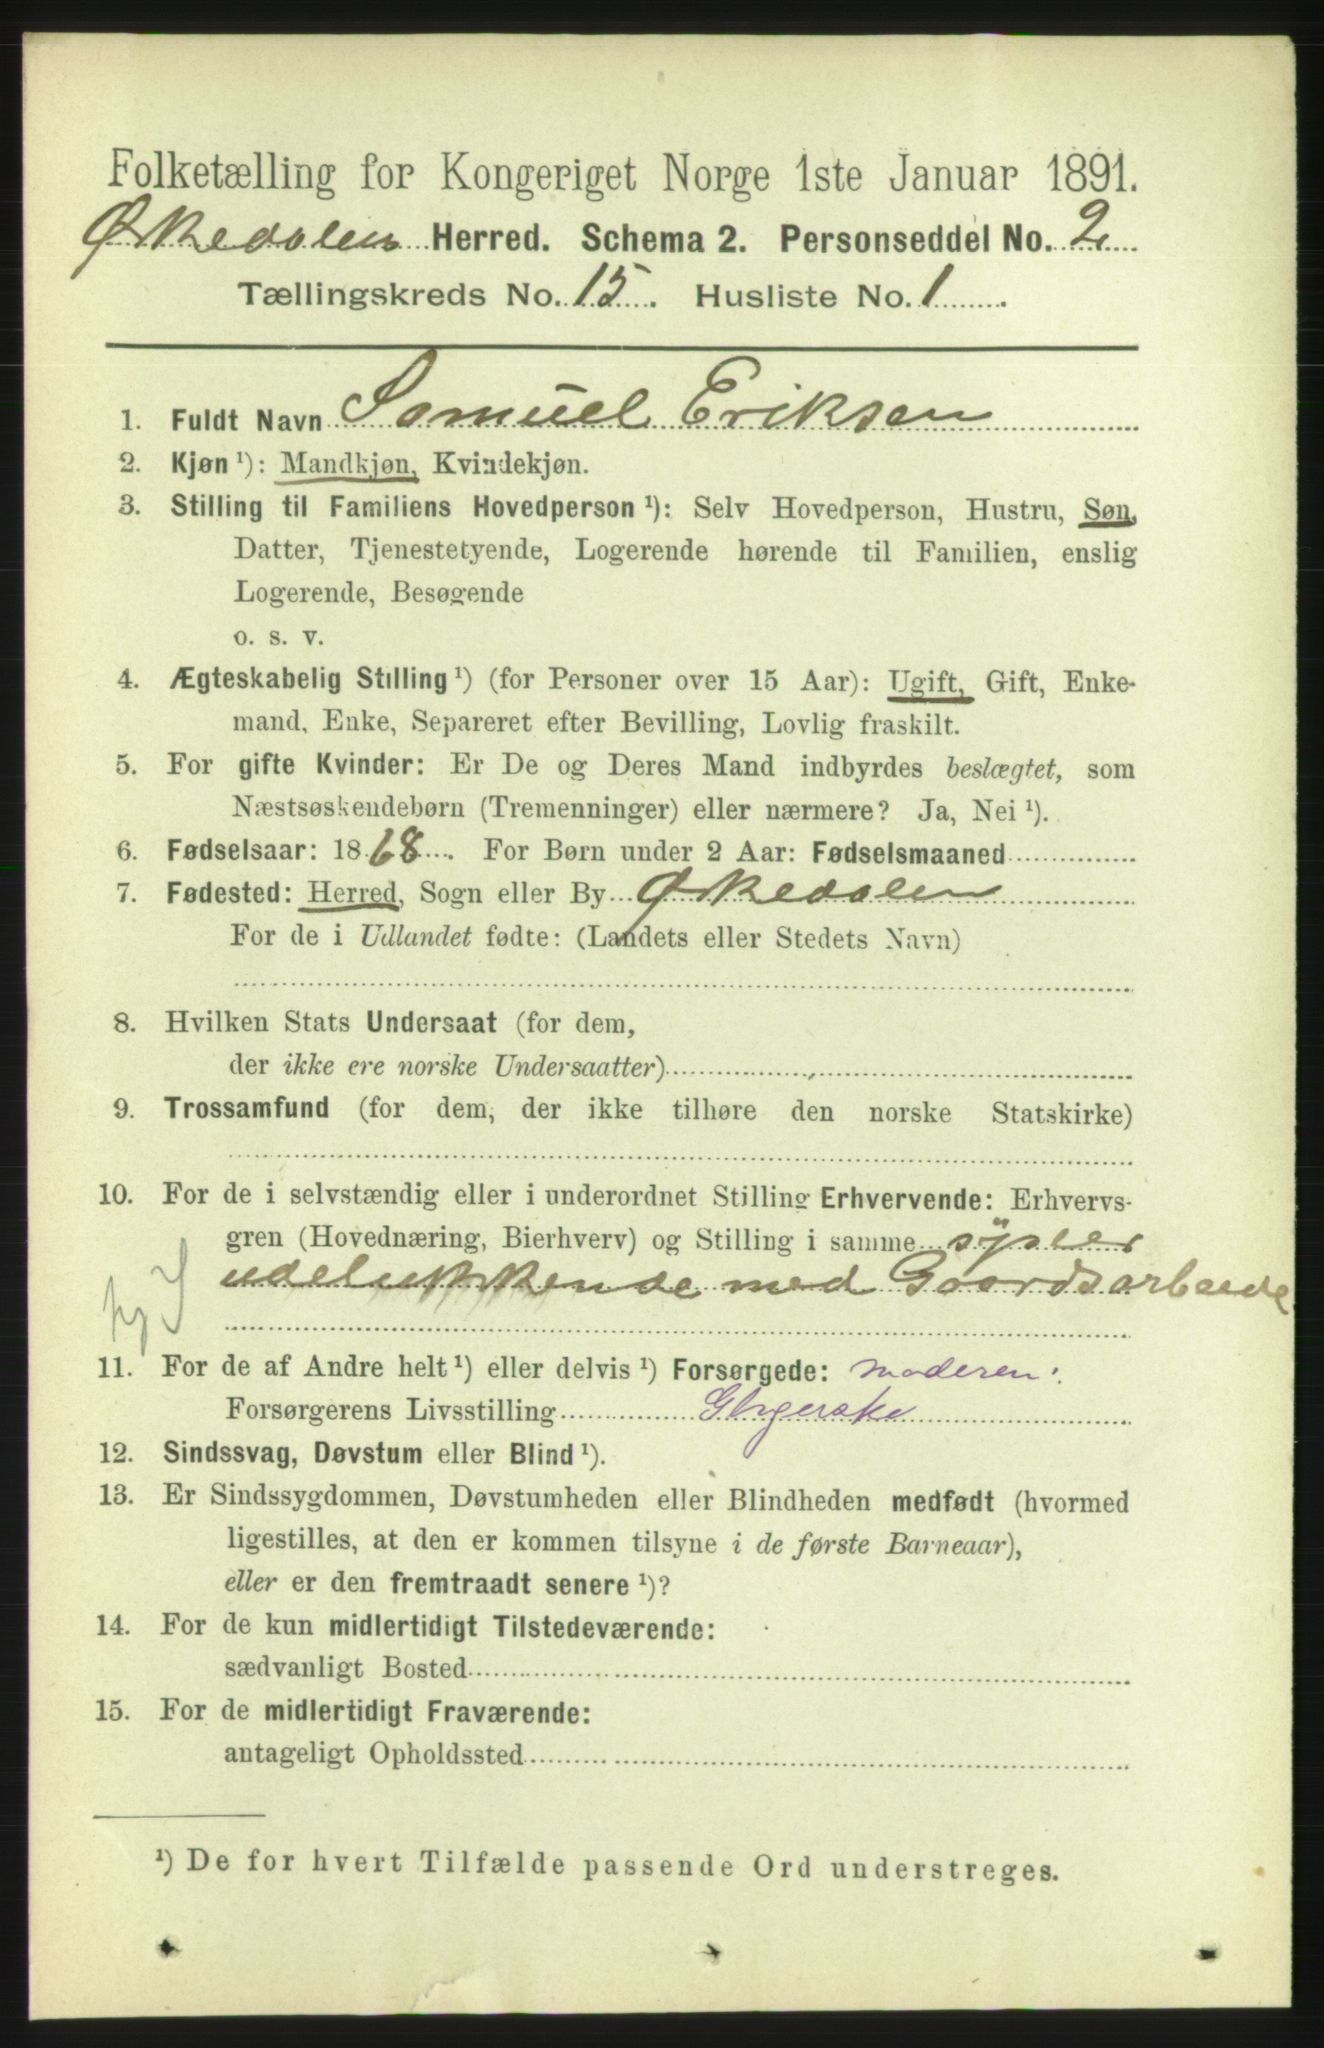 Folketælling for Kongeriget Norge 1ste Januar 1891.
Ørkedalen Herred. Schema 2. Personseddel No. 2
Tællingskreds No. 15. Husliste No. 1.
1. Fuldt Navn Samuel Eriksen
2. Kjøn ¹): Mandkjøn, Kvindekjøn.
3. Stilling til Familiens Hovedperson ¹): Selv Hovedperson, Hustru, Søn,
Datter, Tjenestetyende, Logerende hørende til Familien, enslig
Logerende, Besøgende
o. s. v.
4. Ægteskabelig Stilling ¹) (for Personer over 15 Aar): Ugift, Gift, Enke-
mand, Enke, Separeret efter Bevilling, Lovlig fraskilt.
5. For gifte Kvinder: Er De og Deres Mand indbyrdes beslægtet, som
Næstsøskendebørn (Tremenninger) eller nærmere? Ja, Nei ¹).
6. Fødselsaar: 1868. For Børn under 2 Aar: Fødselsmaaned
7. Fødested: Herred, Sogn eller By Ørkedalen
For de i Udlandet fødte: (Landets eller Stedets Navn)
8. Hvilken Stats Undersaat (for dem,
der ikke ere norske Undersaatter)
9. Trossamfund (for dem, der ikke tilhøre den norske Statskirke)
10. For de i selvstændig eller i underordnet Stilling Erhvervende: Erhvervs-
gren (Hovednæring, Bierhverv) og Stilling i samme sysler
udelukkende med Gaardsarbeide
11. For de af Andre helt ¹) eller delvis ¹) Forsørgede: moderen:
Forsørgerens Livsstilling
12. Sindssvag, Døvstum eller Blind ¹).
13. Er Sindssygdommen, Døvstumheden eller Blindheden medfødt (hvormed
ligestilles, at den er kommen tilsyne i de første Barneaar),
eller er den fremtraadt senere ¹)?
14. For de kun midlertidigt Tilstedeværende:
sædvanligt Bosted
15. For de midlertidigt Fraværende:
antageligt Opholdssted
¹) De for hvert Tilfælde passende Ord understreges.